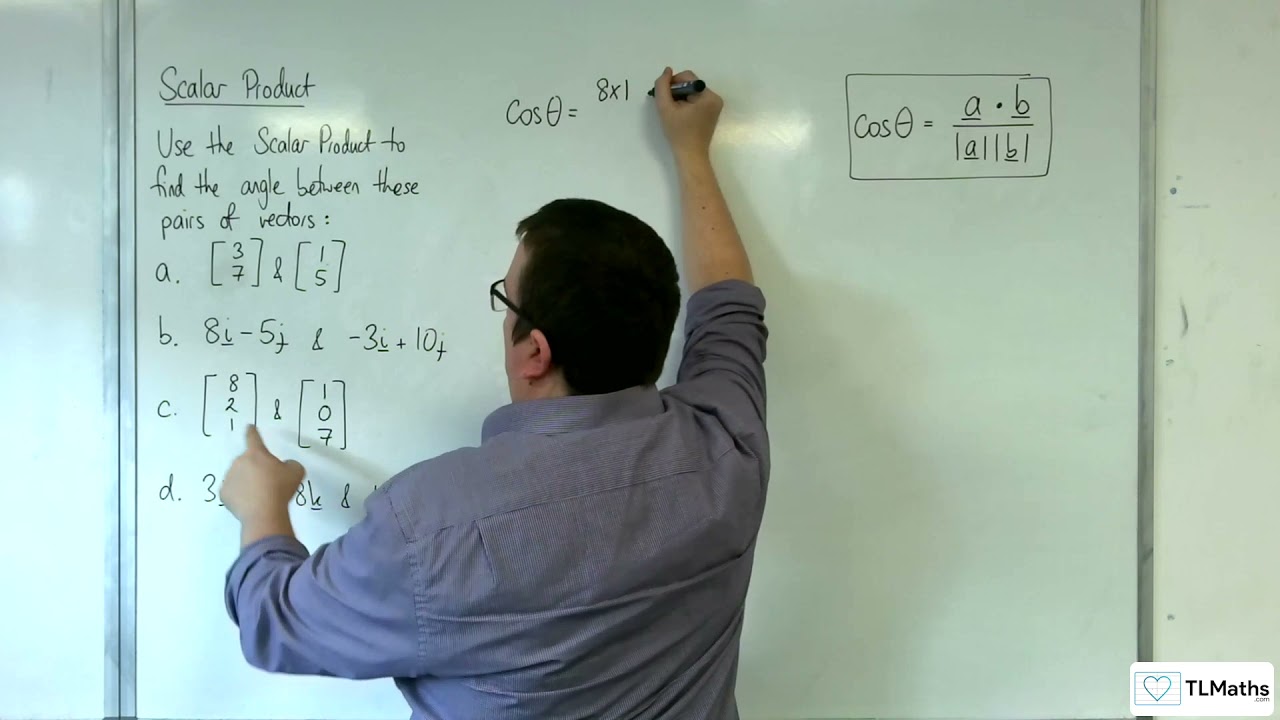 Scalar Product
Use the Scalar Product to
find the angle between these
pairs of vectors:
a. [3 7] & [1 5]
b. 8i - 5j & -3i + 10j
c. [8 2 1] & [1 0 7]
d. 3 8k &
cosθ = 8×1
cosθ = a · b / |a||b|
TLMaths
.com